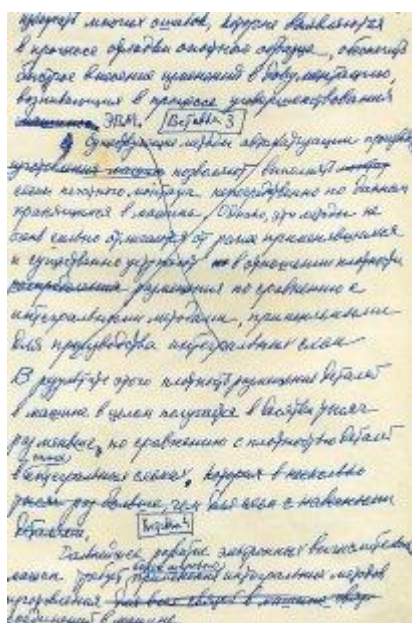 многих ошибок, которые выявляются
в процессе отладки опытного образца, обеспечить
быстрое внесение изменений в документацию,
возникающих в процессе усовершенствования
машины ЭВМ. Вставка 3
Существующие методы автоматизации
позволяют выполнять
схемы печатного монтажа непосредственно по данным
хранящимся в машине. Однако, эти методы не
сильно отличаются от ранее применявшихся
и существенно в отношении плотности
размещения по сравнению с
интегральными методами, применяемыми
для производства интегральных схем
В результате этого плотность размещения деталей
в машине в целом получается в десятки тысяч
раз меньше, по сравнению с плотностью деталей
в интегральных схемах, которая в несколько
тысяч раз больше, чем для схем с навесными
деталями.
Вставка 4
Дальнейшее развитие электронных вычислительных
машин требует применения интегральных методов
изготовления для всех связей в машине
в машине